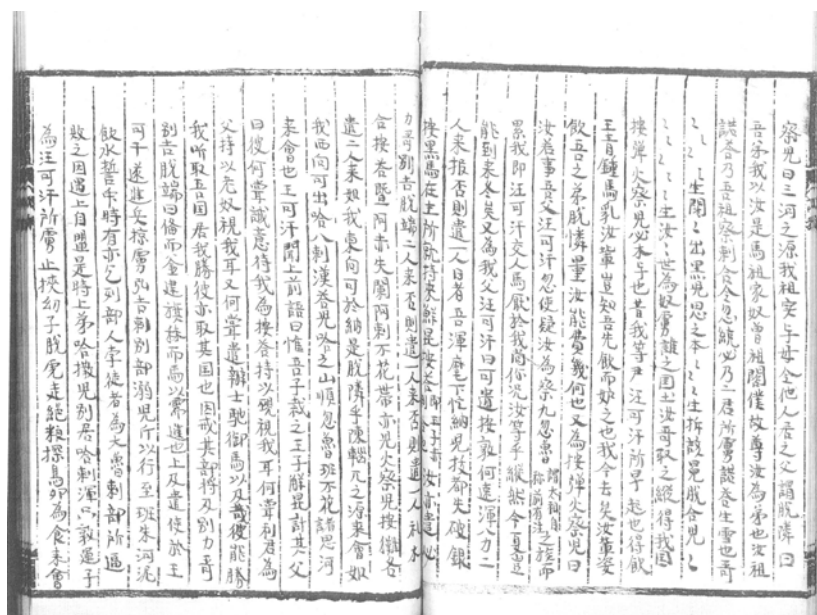 察兒曰三河之源我祖实与毋令他人居之又謂脫隣曰
吾弟我以汝是高祖家奴曾祖閽僕故尊汝為弟也汝祖
諾荅乃吾祖察剌合令忽統必乃二君所虜諾荅生雪也哥
〻〻〻生闊〻出黑兒思之本〻〻〻生折該晃脫合兒〻
〻〻〻〻生汝〻世為奴虜誰之国土汝哥取之縱得我国
按彈火察兒必不与也昔我等尹汪可汗所早起也得飲
王青鍾馬乳汝輩豈知吾先飲而妬之也我今去矣汝輩姿
飲吾之弟脫憐量汝能費幾何也又為按彈火察兒曰
汝善事吾父汪可汗忽使疑汝為察兀忽魯謂太祖自称前有注之族而
累我即汪可汗交人馬厭於我尚你况汝等乎縱然今夏豈
能到來冬矣又為我父汪可汗曰可遣按敦何遠渾八力二
人來报否則遣一人日者吾渾麾下忙納兒拔都失破銀
按黑馬在王所就持來鮮昆按荅汝亦遣必
力哥別吉脫端二人來否則遣一人
合按荅暨阿赤失闌阿剌不花帶亦兒火察兒按彈各
遣二人來如我東向可於納是脫隣乎陳輟兀之源來會如
我西向可出哈八剌漢荅兒哈之山順忽魯班不花諸思河
來會也王可汗聞上前語曰惟吾子裁之王子鮮昆謂其父
曰彼何嘗誠意待我為按荅持以覡視我耳何嘗利君為
父持以老奴視我耳又何嘗遣辨士馳御馬以及我彼能勝
我听取吾国若我勝彼亦取其国也因戒其部将及別力哥
別吉脫端曰脩而釜建旗秣而馬以需進也上及遣使於王
可干遂進兵擄虜弘吉剌別部溺兒斤以行至班朱河泥
飲水誓衆時有亦乞列部人孛徒者為大魯剌部所逼
敗之因遇上自盟是時上弟哈撒兒別居哈剌渾只敦還子
為汪可汗所虜止挾幼子脫虎走絕粮探鳥卵為食来會